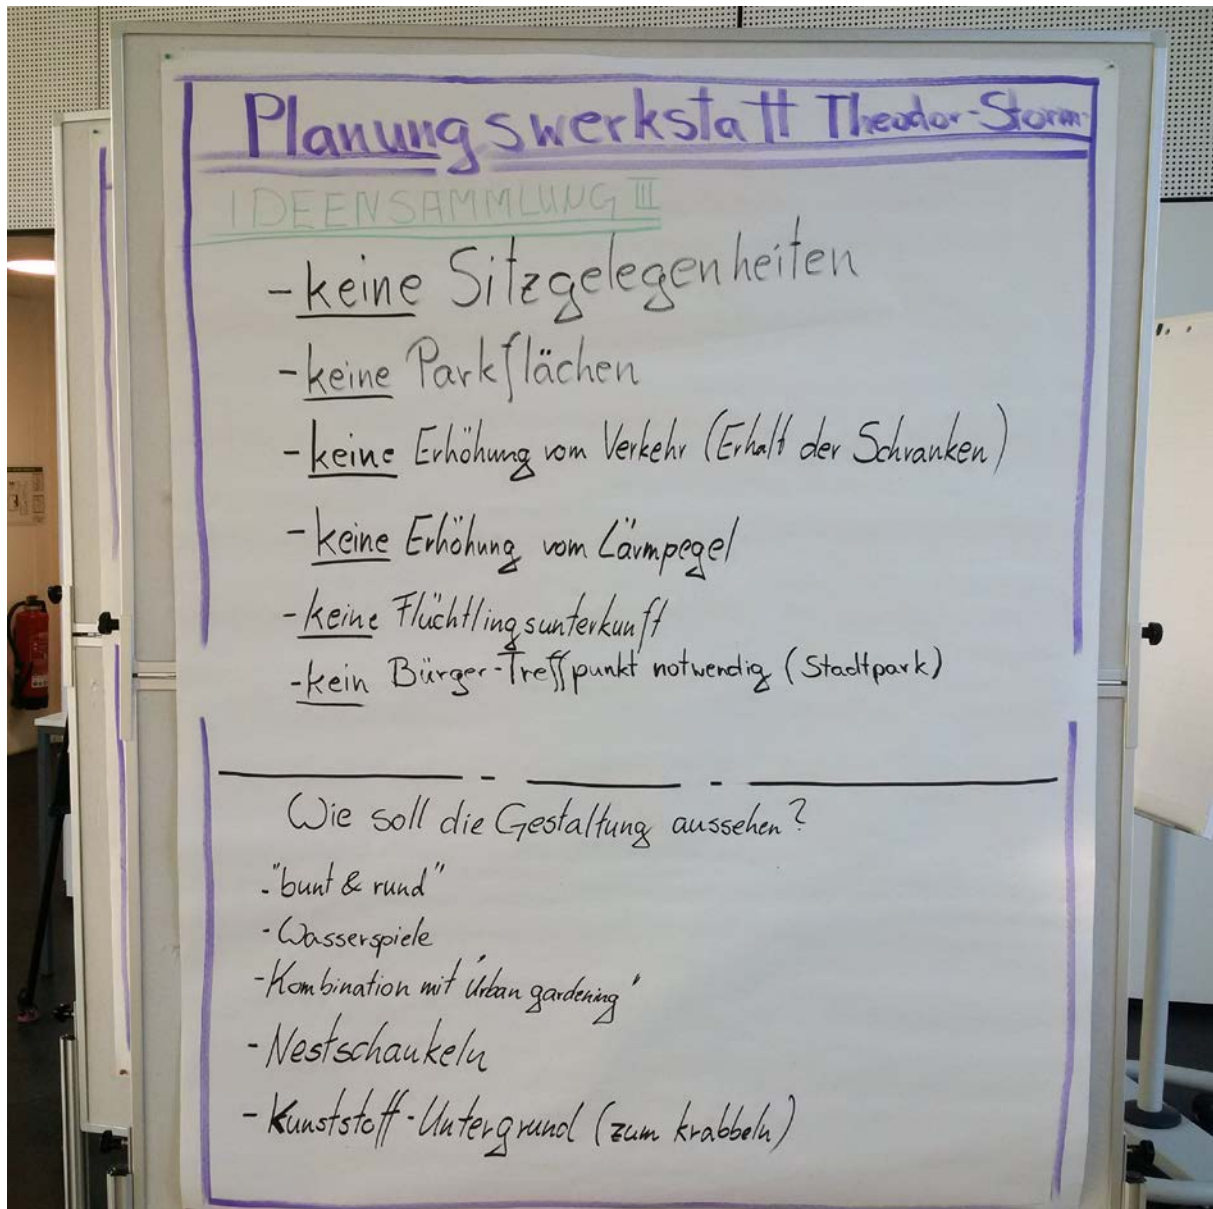 Planungswerkstatt Theodor-Storm-
IDEENSAMMLUNG III
- keine Sitzgelegenheiten
- keine Parkflächen
- keine Erhöhung vom Verkehr (Erhalt der Schranken)
- keine Erhöhung vom Lärmpegel
- keine Flüchtlingsunterkunft
- kein Bürger-Treffpunkt notwendig (Stadtpark)
Wie soll die Gestaltung aussehen?
- "bunt & rund"
- Wasserspiele
- Kombination mit "Urban gardening"
- Nestschaukeln
- Kunststoff-Untergrund (zum krabbeln)